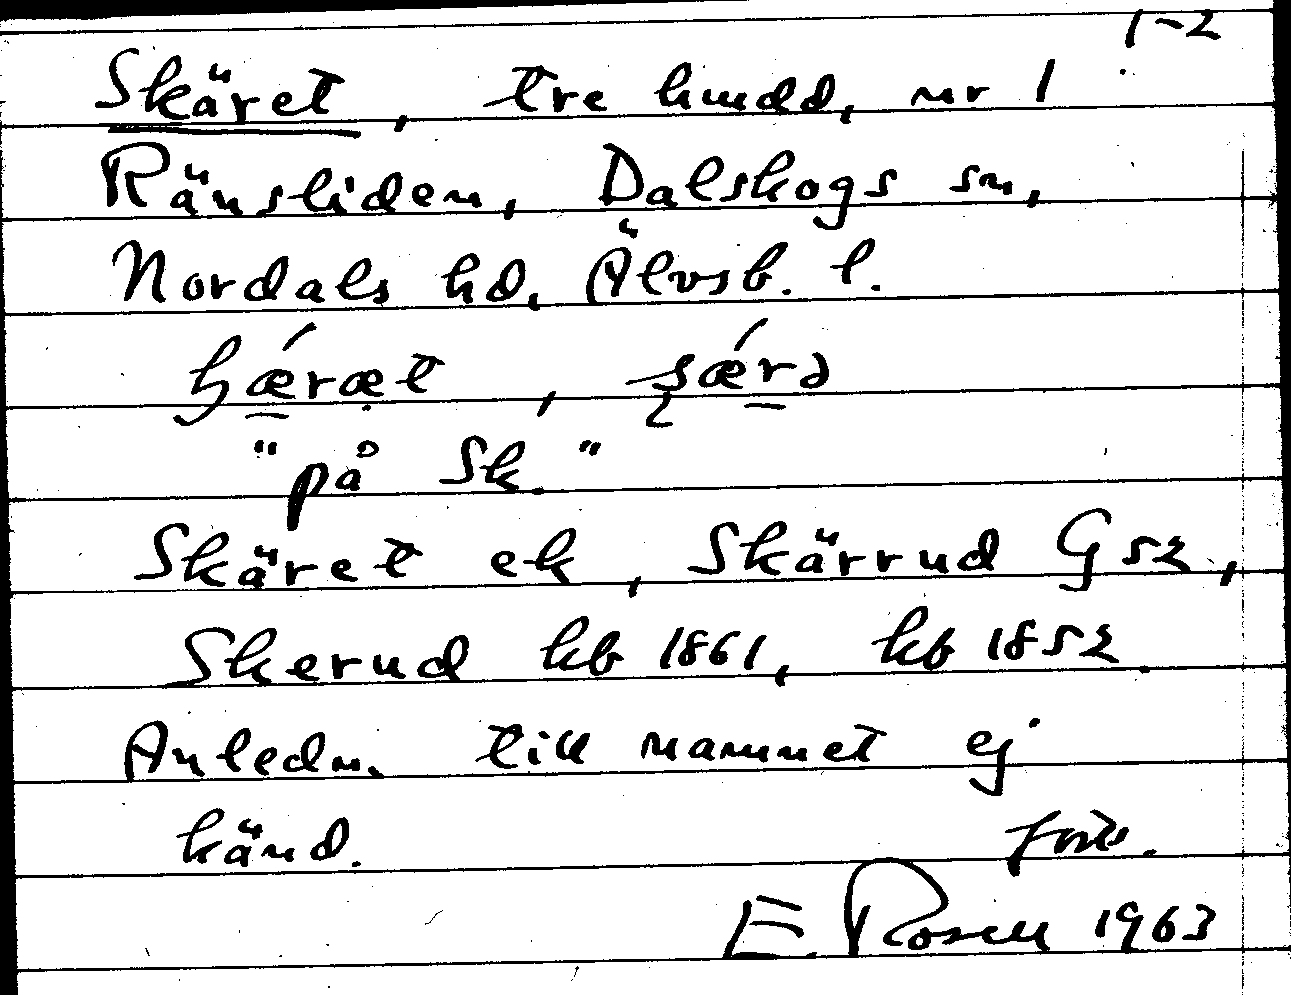 1-2
Skäret, tre hmdd, nr 1
Ränsliden, Dalskogs sn,
Nordals hd, Älvsb. l.
"på Sk."
Skäret ek, Skärrud G52,
Skerud kb 1861, kb 1852.
Anledn. till namnet ej
känd. forts.
E. Rosell 1963